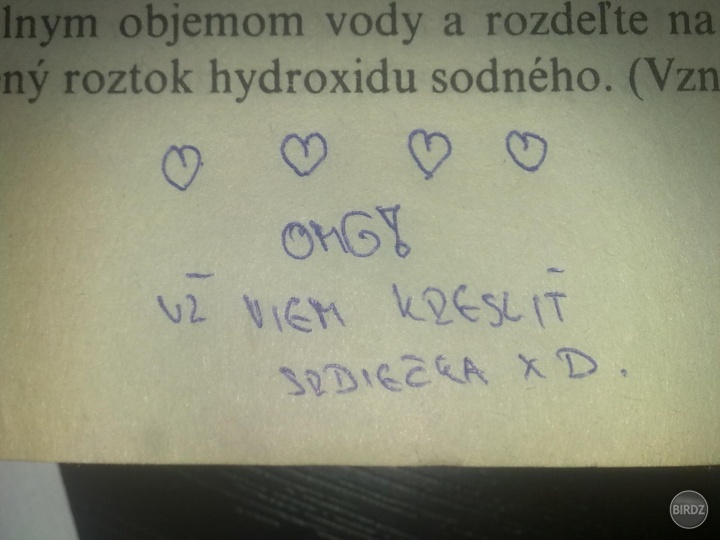 lnym objemom vody a rozdeľte na
ný roztok hydroxidu sodného. (Vzn
♡ ♡ ♡ ♡
OMG!
UŽ VIEM KRESLIŤ
SRDIEČKA XD.
BIRDZ